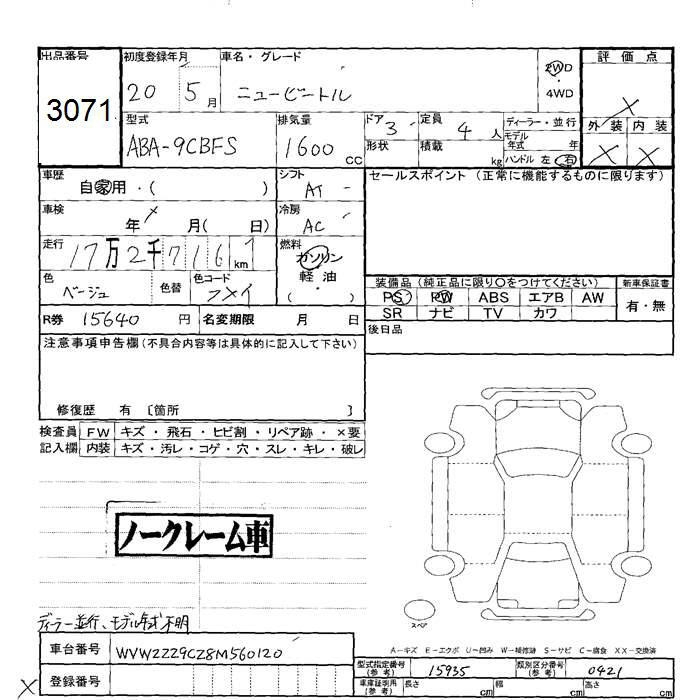 出品番号
3071
初度登録年月
20 5月
車名・グレード
ニュービートル
2WD
・
4WD
評価点
X
外装 内装
X X
型式
ABA-9CBFS
排気量
1600 cc
ドア 3
形状
定員 4 人
積載 kg
ディーラー・並行
モデル年式 年
ハンドル 左・右
車歴
自家用・( )
シフト
AT
セールスポイント (正常に機能するものに限ります)
車検
X 年 月( 日)
冷房
AC
走行
17万2千716km
燃料
ガソリン
・
軽油
( )
色
ベージュ
色替
色コード
フメイ
装備品 (純正品に限り○をつけてください)
PS PW ABS エアB AW
SR ナビ TV カワ
新車保証書
有・無
R券 15640 円 名変期限 月 日
後日品
注意事項申告欄(不具合内容等は具体的に記入して下さい)
修復歴 有 〔箇所 〕
検査員 FW キズ・飛石・ヒビ割・リペア跡・×要
記入欄 内装 キズ・汚レ・コゲ・穴・スレ・キレ・破レ
ノークレーム車
ディラー並行、モデル年式不明
スペア
A-キズ E-エクボ U-凹み W-補修跡 S-サビ C-腐食 XX-交換済
車台番号 WVWZZZ9CZ8M560120
型式指定番号(参考) 15935
類別区分番号(参考) 0421
X 登録番号
車庫証明用(参考) 長さ cm 幅 cm 高さ cm